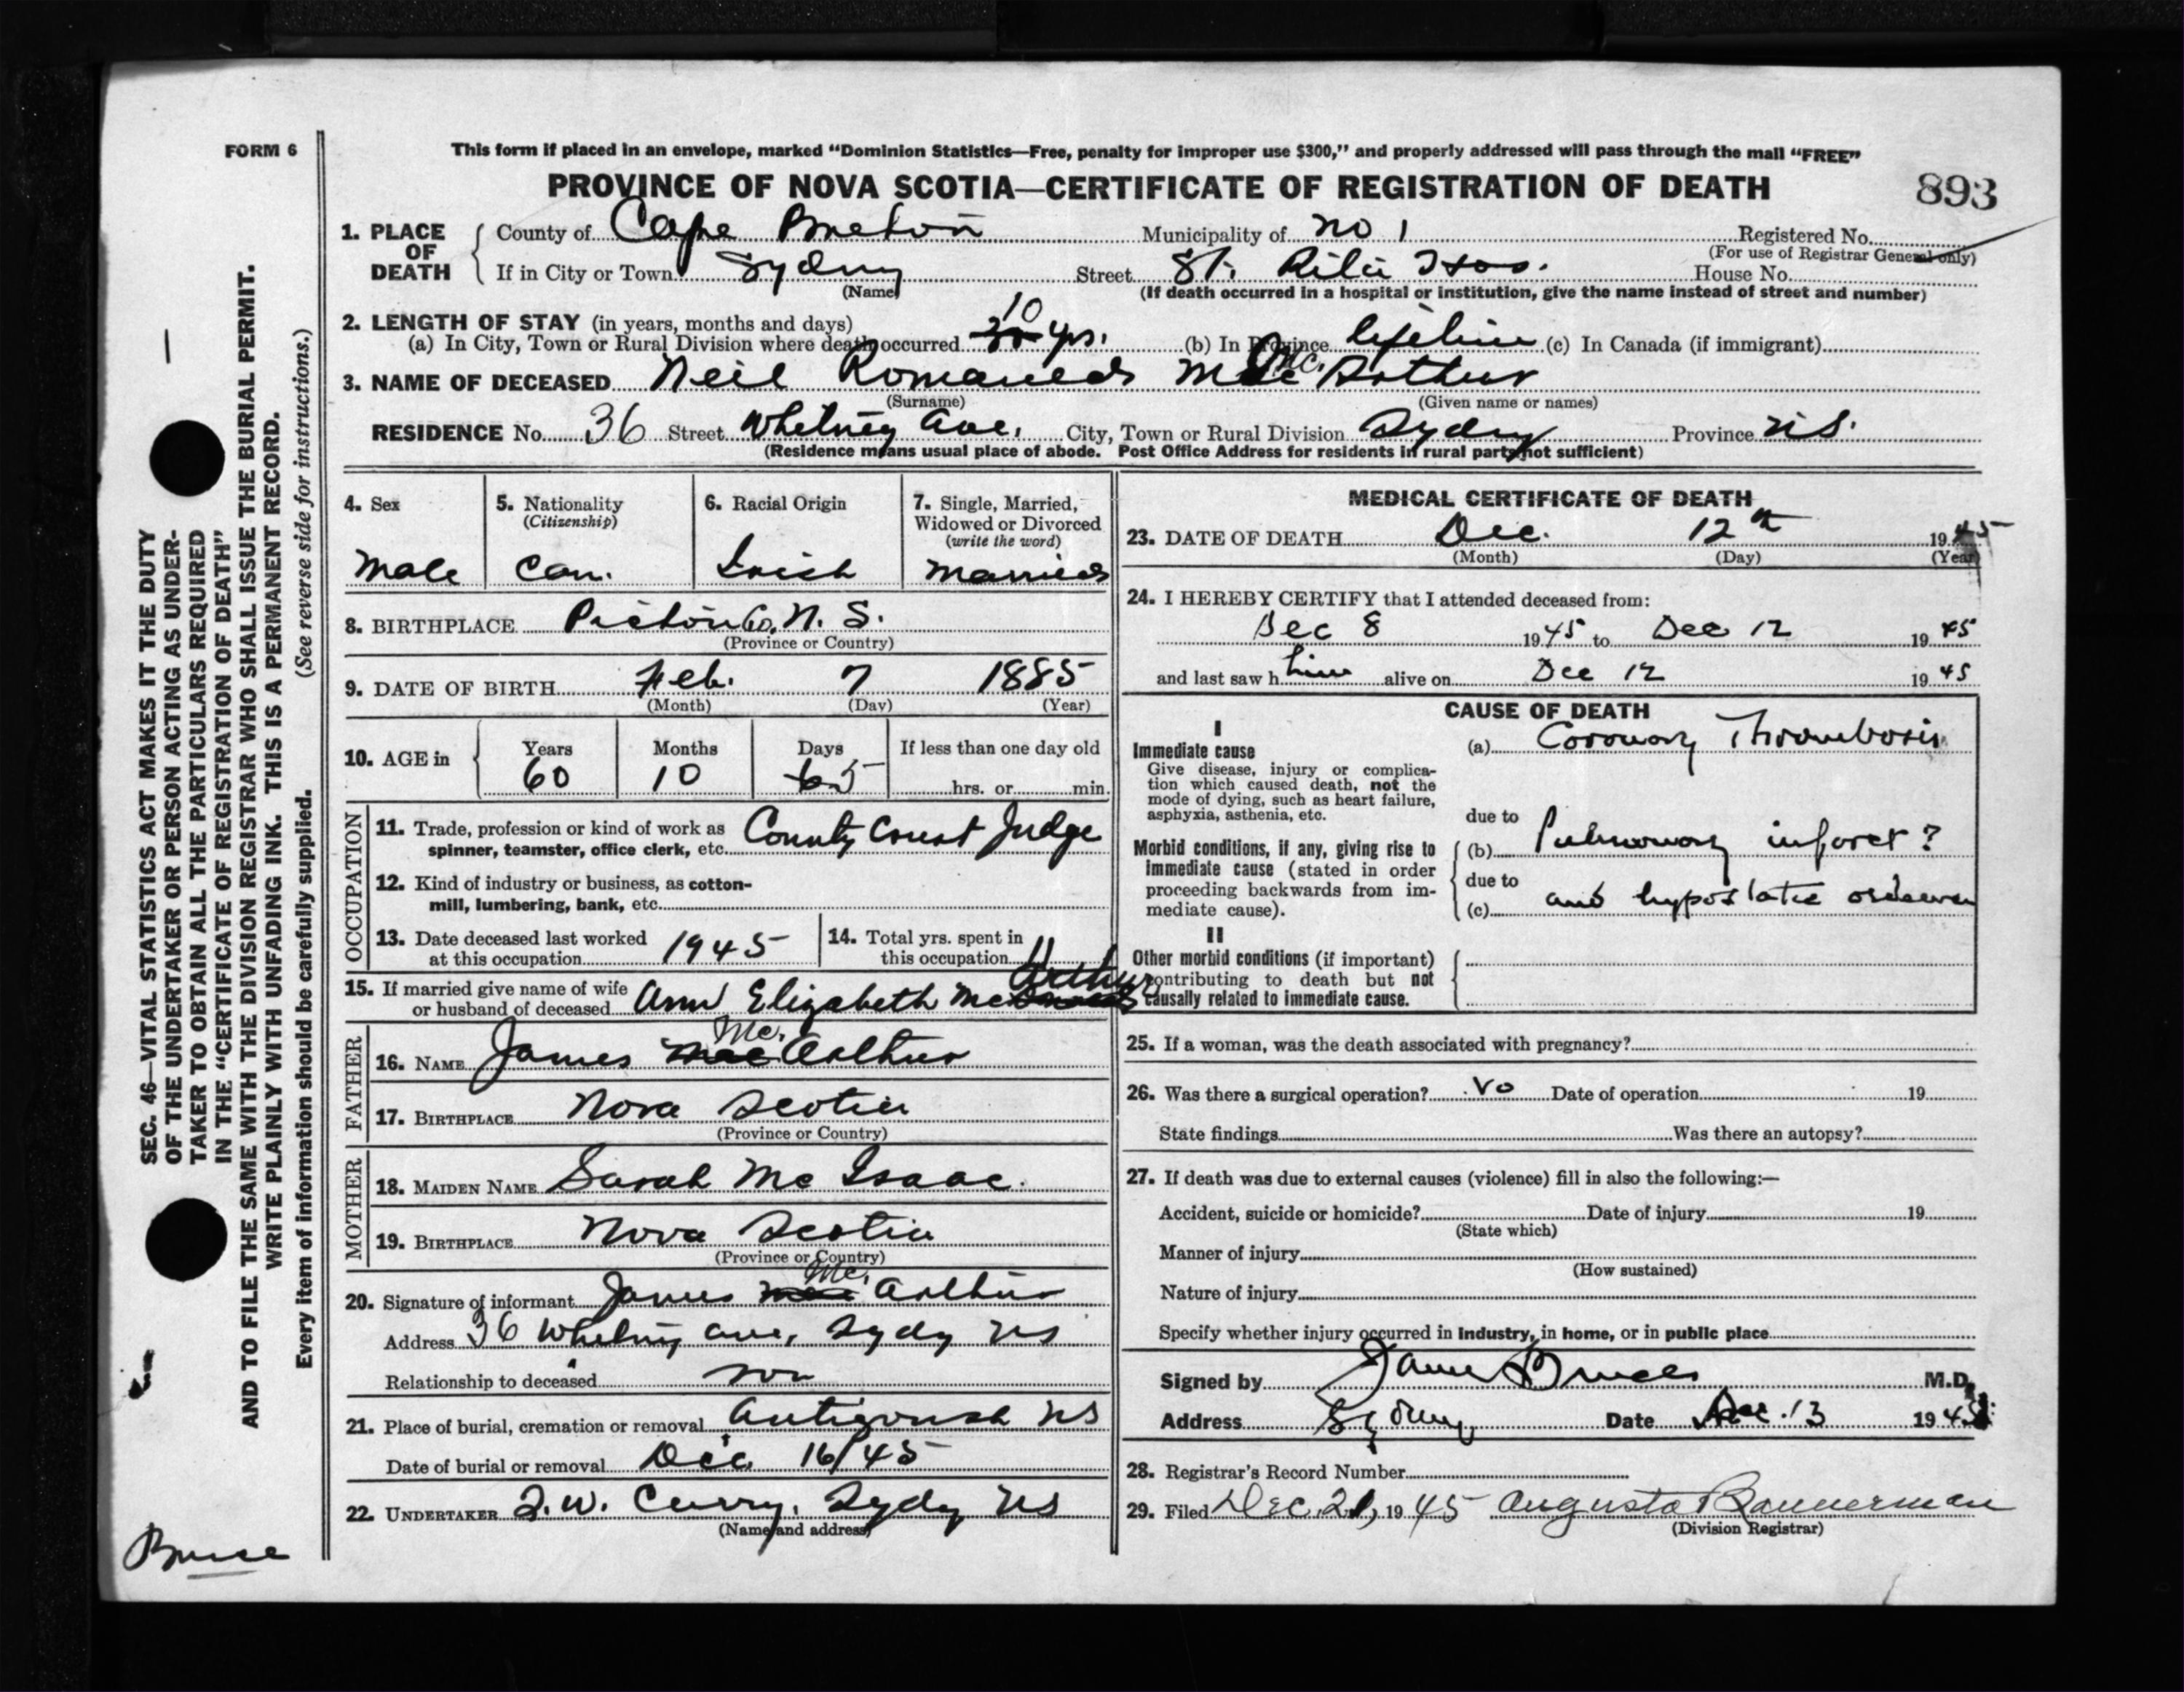 FORM 6
This form if placed in an envelope, marked "Dominion Statistics—Free, penalty for improper use $300," and properly addressed will pass through the mail "FREE"
PROVINCE OF NOVA SCOTIA—CERTIFICATE OF REGISTRATION OF DEATH
893
1. PLACE OF DEATH County of Cape Breton Municipality of no 1 Registered No.
(For use of Registrar General only)
If in City or Town Sydney Street St. Rita Hos. House No.
(Name) (If death occurred in a hospital or institution, give the name instead of street and number)
2. LENGTH OF STAY (in years, months and days)
(a) In City, Town or Rural Division where death occurred 10 yrs. (b) In Province lifetime (c) In Canada (if immigrant)
3. NAME OF DECEASED Neil Mc. Arthur
(Surname) (Given name or names)
RESIDENCE No. 36 Street Whitney Ave. City, Town or Rural Division Sydney Province N.S.
(Residence means usual place of abode. Post Office Address for residents in rural parts not sufficient)
4. Sex Male
5. Nationality (Citizenship) Can.
6. Racial Origin Irish
7. Single, Married, Widowed or Divorced (write the word) Married
8. BIRTHPLACE Pictou Co. N. S.
(Province or Country)
9. DATE OF BIRTH Feb. 7 1885
(Month) (Day) (Year)
10. AGE in Years 60 Months 10 Days 5 If less than one day old
hrs. or min.
OCCUPATION
11. Trade, profession or kind of work as spinner, teamster, office clerk, etc. County Court Judge
12. Kind of industry or business, as cotton-mill, lumbering, bank, etc.
13. Date deceased last worked at this occupation 1945
14. Total yrs. spent in this occupation 11
15. If married give name of wife or husband of deceased Ann Elizabeth Mc Arthur
FATHER
16. NAME James Mc. Arthur
17. BIRTHPLACE Nova Scotia
(Province or Country)
MOTHER
18. MAIDEN NAME Sarah Mc Isaac.
19. BIRTHPLACE Nova Scotia
(Province or Country)
20. Signature of informant James Mc. Arthur
Address 36 Whitney Ave, Sydy NS
Relationship to deceased son
21. Place of burial, cremation or removal Antigonish NS
Date of burial or removal Dec. 16/45
22. UNDERTAKER Curry, Sydy NS
(Name and address)
MEDICAL CERTIFICATE OF DEATH
23. DATE OF DEATH Dec. 12th 1945
(Month) (Day) (Year)
24. I HEREBY CERTIFY that I attended deceased from:
Dec 8 1945 to Dec 12 1945
and last saw him alive on Dec 12 1945
CAUSE OF DEATH
I
Immediate cause
Give disease, injury or complication which caused death, not the mode of dying, such as heart failure, asphyxia, asthenia, etc.
(a) Coronary Thrombosis
due to
Morbid conditions, if any, giving rise to immediate cause (stated in order proceeding backwards from immediate cause).
(b) Pulmonary infarct?
due to
(c) and hypostatic oedema
II
Other morbid conditions (if important) contributing to death but not causally related to immediate cause.
25. If a woman, was the death associated with pregnancy?
26. Was there a surgical operation? No Date of operation 19
State findings Was there an autopsy?
27. If death was due to external causes (violence) fill in also the following:—
Accident, suicide or homicide? Date of injury 19
(State which)
Manner of injury
(How sustained)
Nature of injury
Specify whether injury occurred in industry, in home, or in public place
Signed by Bruce M.D.
Address Sydney Date Dec. 13 1945
28. Registrar's Record Number
29. Filed Dec. 21, 1945 Augusta Bannerman
(Division Registrar)
SEC. 46—VITAL STATISTICS ACT MAKES IT THE DUTY
OF THE UNDERTAKER OR PERSON ACTING AS UNDER-
TAKER TO OBTAIN ALL THE PARTICULARS REQUIRED
IN THE "CERTIFICATE OF REGISTRATION OF DEATH"
AND TO FILE THE SAME WITH THE DIVISION REGISTRAR WHO SHALL ISSUE THE BURIAL PERMIT.
WRITE PLAINLY WITH UNFADING INK. THIS IS A PERMANENT RECORD.
Every item of information should be carefully supplied. (See reverse side for instructions.)
Bruce